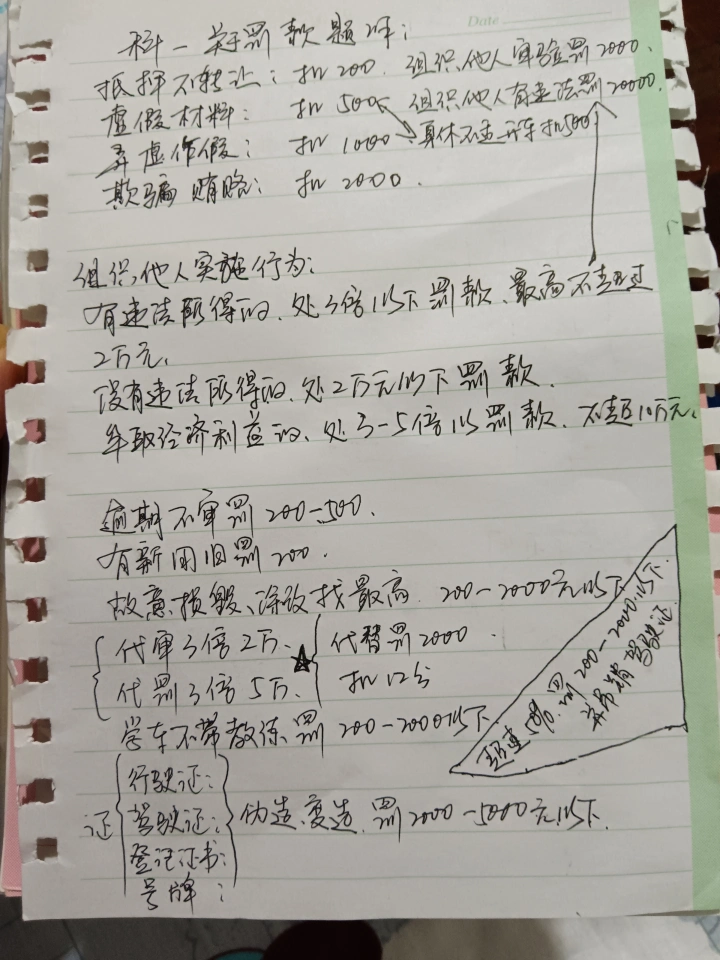 Date
科一关于罚款题库:
抵押不转让: 扣200. 组织他人审验罚2000.
虚假材料: 扣500 组织他人有违法罚20000.
弄虚作假: 扣1000. 身体不适开车扣500
欺骗贿赂: 扣2000.
组织他人实施行为:
有违法所得的、处3倍以下罚款、最高不超过
2万元.
没有违法所得的、处2万元以下罚款.
牟取经济利益的、处3-5倍以罚款、不超10万元.
逾期不审罚200-500.
有新用旧罚200.
故意损毁、涂改找最高. 200-2000元以下
代审3倍2万. ★ 代替罚2000.
代罚3倍5万. 扣12分
学车不带教练罚200-2000以下
超速50%.罚200-2000.以下.
并吊销驾驶证
证
行驶证:
驾驶证: 伪造变造. 罚2000-5000元以下.
登记证书:
号牌: